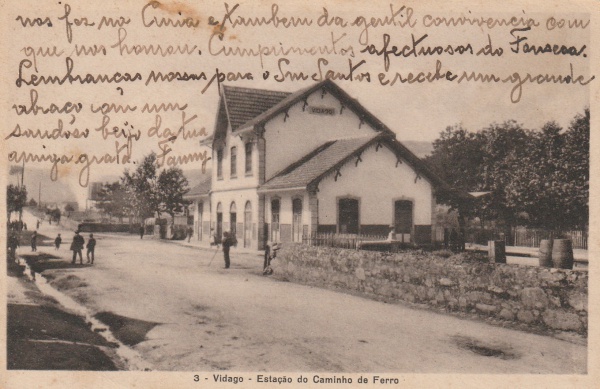 nos fez na Curia e tambem da gentil convivencia com
que nos honrou. Cumprimentos afectuosos do Fonseca.
Lembranças nossas para o Snr Santos e recebe um grande
abraço com um
saudoso beijo da tua
amiga grata. Fanny
VIDAGO
3 - Vidago - Estação do Caminho de Ferro